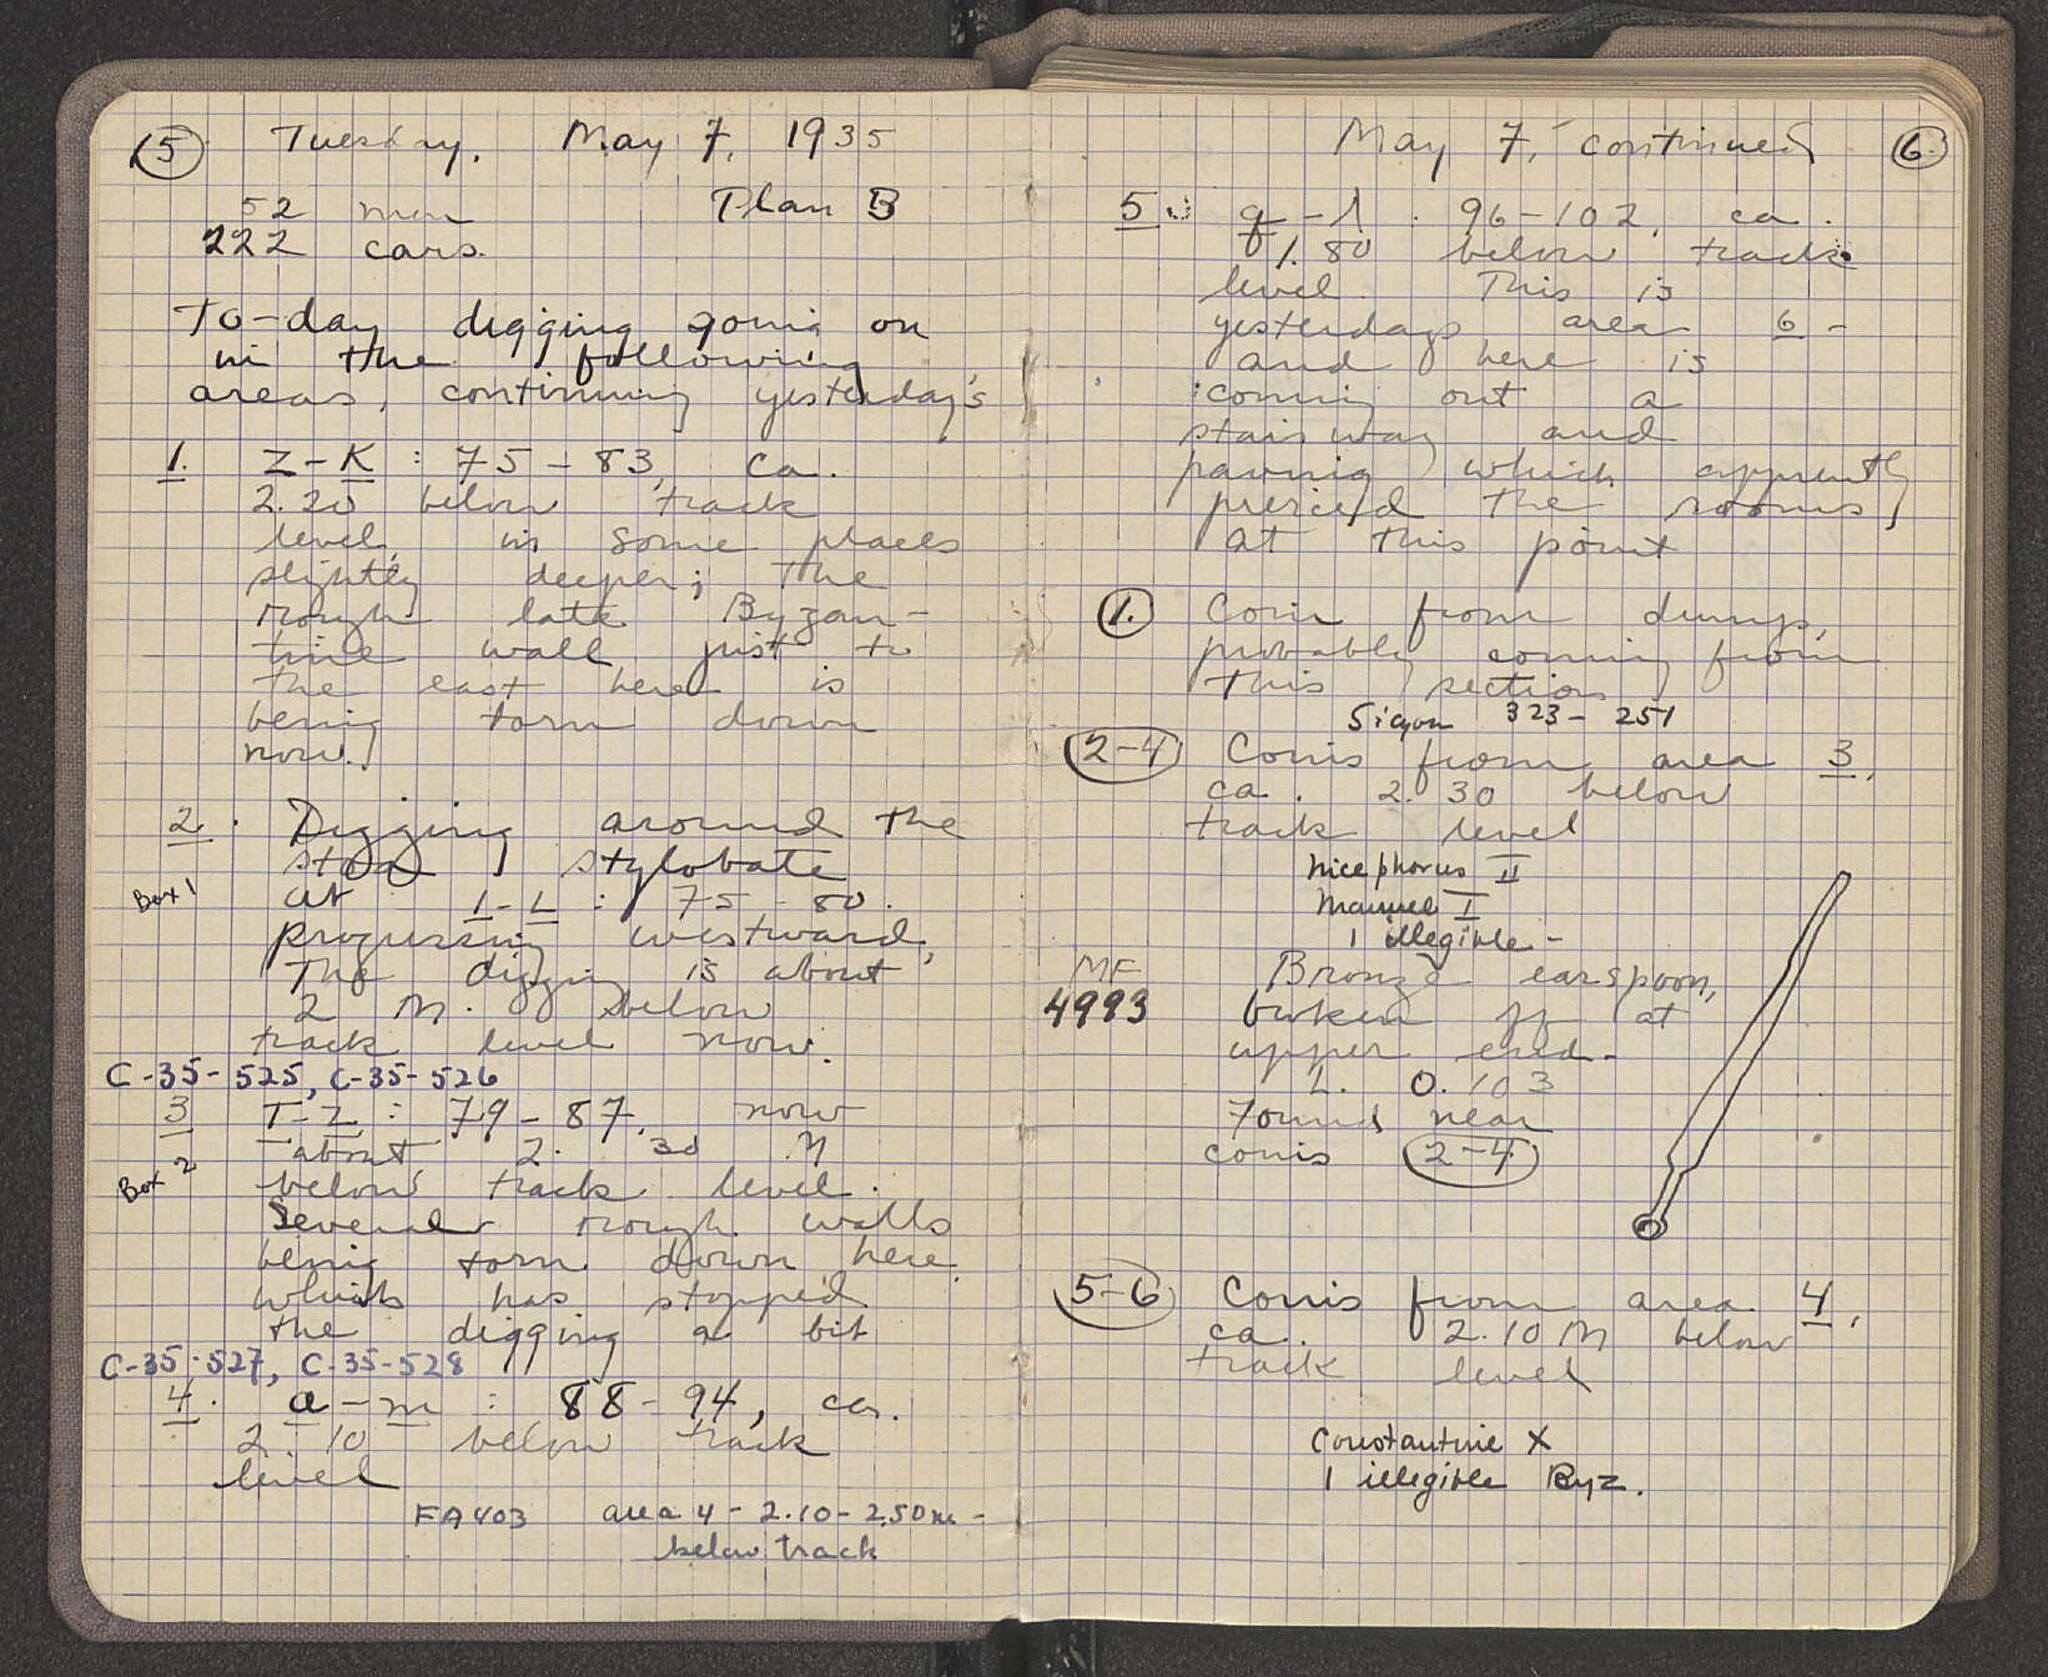 5 Tuesday, May 7, 1935
52 men Plan B
222 cars.
To-day digging going on
in the following
areas, continuing yesterday's
1. Z-K : 75-83, ca.
2.20 below track
level, in some places
slightly deeper; the
rough late Byzan-
tine wall just to
the east here is
being torn down
now.
2. Digging around the
stoa stylobate
Box 1
at I-L : 75-80.
progressing westward,
The digging is about
2 M. below
track level now.
C-35-525, C-35-526
3 T-Z : 79-87, now
about 2.30 M
Box 2
below track level.
Several rough walls
being torn down here
which has stopped
the digging a bit
C-35-527, C-35-528
4. a-m : 88-94, ca.
2.10 below track
level
FA403 area 4 - 2.10-2.50m -
below track
May 7, continued 6.
5. q- : 96-102, ca.
1.80 below track
level. This is
yesterdays area 6 -
and here is
coming out a
stairway and
paving which apprently
preceed the rooms
at this point
1. Coin from dump,
probably coming from
this section
Sicyon 323-251
2-4 Coins from area 3,
ca. 2.30 below
track level
Nicephorus II
Manuel I
1 illegible -
MF Bronze earspoon,
4993 broken off at
upper end -
L. 0.103
Found near
coins 2-4
5-6 Coins from area 4,
ca. 2.10 M below
track level
Constantine X
1 illegible Byz.